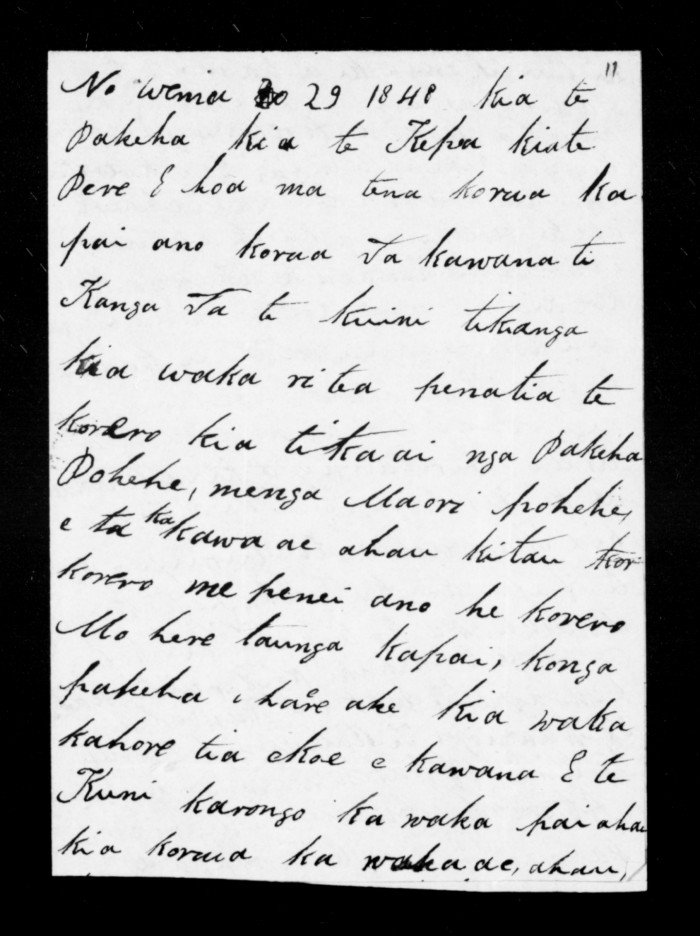 11
No wenia 29 1848 kia te
Pakeha kia te Kepa kiate
Pere E hoa ma tena korua ka
pai ano korua Ta kawana ti
Kanga Ta te kuini tikanga
kia waka ri tea penatia te
korero kia tika ai nga Pakeha
Pohehe, menga Maori pohehe,
e ta ka kawa ae ahau kitau kor
korero me penei ano he korero
Mo here taunga kapai, konga
pakeha ihare ake kia waka
kahore tia ekoe e kawana E te
Kuni karongo ka waka pai ahau
kia korua ka waka ae, ahau,